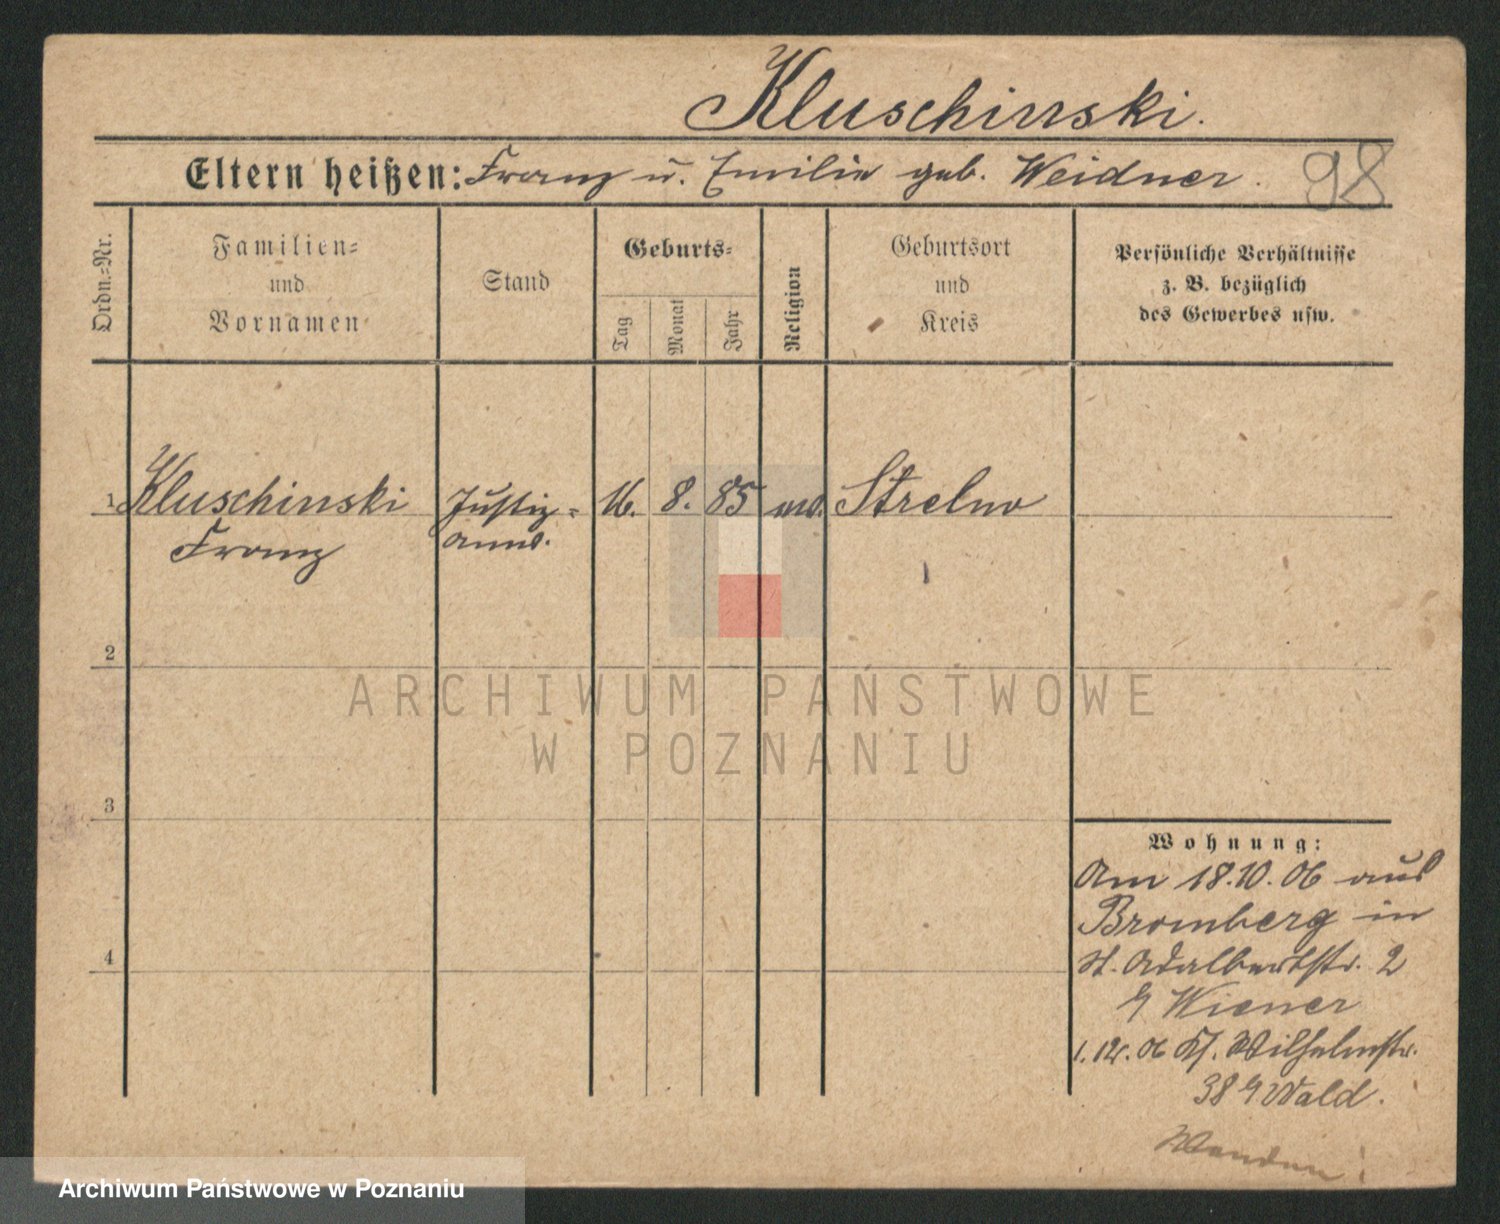 Kluschinski.
Eltern heißen: Franz u. Emilie geb. Weidner.
98
Ordn.=Nr.
Familien=
und
Vornamen
Stand
Geburts=
Tag
Monat
Jahr
Religion
Geburtsort
und
Kreis
Persönliche Verhältnisse
z. B. bezüglich
des Gewerbes usw.
1 Kluschinski Justiz= 16. 8. 85 Strelno
Franz anw.
2
3
4
Wohnung:
Am 18.10.06 aus
Bromberg in
St. Adalbertstr. 2
Wiener
1.12.06 Wilhelmstr.
38 Wald.
Wenden!
ARCHIWUM PAŃSTWOWE
W POZNANIU
Archiwum Państwowe w Poznaniu